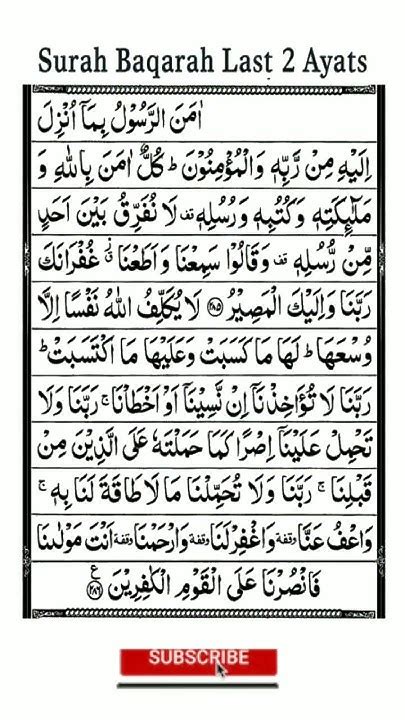 Surah Baqarah Last 2 Ayats
اٰمَنَ الرَّسُوْلُ بِمَاۤ اُنْزِلَ
اِلَيْهِ مِنْ رَّبِّهٖ وَالْمُؤْمِنُوْنَ ؕ كُلٌّ اٰمَنَ بِاللّٰهِ وَ
مَلٰٓئِكَتِهٖ وَكُتُبِهٖ وَرُسُلِهٖ قف لَا نُفَرِّقُ بَيْنَ اَحَدٍ
مِّنْ رُّسُلِهٖ قف وَقَالُوْا سَمِعْنَا وَاَطَعْنَا ق غُفْرَانَكَ
رَبَّنَا وَاِلَيْكَ الْمَصِيْرُ ﴿۲۸۵﴾ لَا يُكَلِّفُ اللّٰهُ نَفْسًا اِلَّا
وُسْعَهَا ؕ لَهَا مَا كَسَبَتْ وَعَلَيْهَا مَا اكْتَسَبَتْ ؕ
رَبَّنَا لَا تُؤَاخِذْنَاۤ اِنْ نَّسِيْنَاۤ اَوْ اَخْطَاْنَا ۚ رَبَّنَا وَلَا
تَحْمِلْ عَلَيْنَاۤ اِصْرًا كَمَا حَمَلْتَهٗ عَلَى الَّذِيْنَ مِنْ
قَبْلِنَا ۚ رَبَّنَا وَلَا تُحَمِّلْنَا مَا لَا طَاقَةَ لَنَا بِهٖ ۚ
وَاعْفُ عَنَّا وقفة وَاغْفِرْ لَنَا وقفة وَارْحَمْنَا وقفة اَنْتَ مَوْلٰىنَا
فَانْصُرْنَا عَلَى الْقَوْمِ الْكٰفِرِيْنَ ﴿۲۸۶﴾ ع
SUBSCRIBE